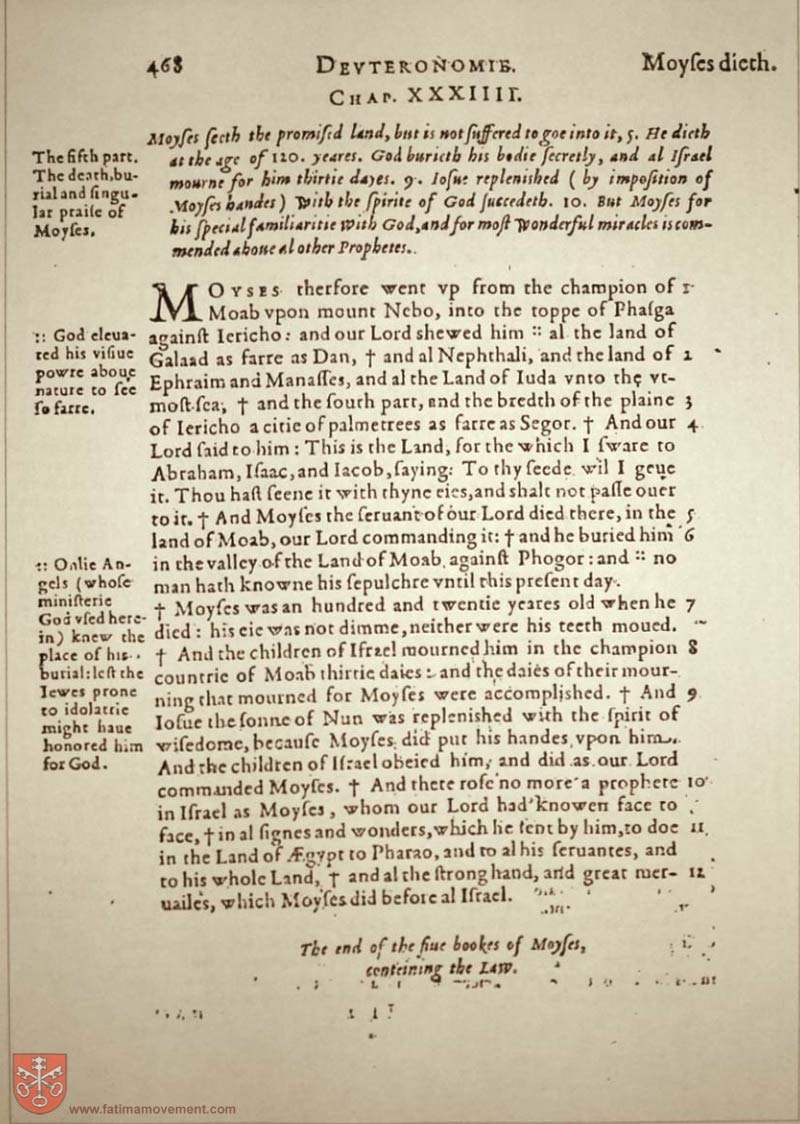 468 DEVTERONOMIE. Moyſes dieth.
CHAP. XXXIIII.
Moyſes ſeeth the promiſed land, but is not ſuffered to goe into it, 5. He dieth
at the age of 120. yeares. God burieth his bodie ſecretly, and al Iſrael
mourne for him thirtie dayes. 9. Ioſue repleniſhed (by impoſition of
Moyſes handes) with the ſpirite of God ſuccedeth. 10. But Moyſes for
his ſpecial familiaritie with God, and for moſt wonderful miracles is com-
mended aboue al other Prophetes.
The fifth part.
The death, bu-
rial and ſingu-
lar praiſe of
Moyſes.
MOYSES therfore went vp from the champion of 1
Moab vpon mount Nebo, into the toppe of Phaſga
againſt Iericho: and our Lord shewed him :: al the land of
Galaad as farre as Dan, † and al Nephthali, and the land of 2
Ephraim and Manaſſes, and al the Land of Iuda vnto the vt-
moſt ſea, † and the ſouth part, and the bredth of the plaine 3
of Iericho a citie of palmetrees as farre as Segor. † And our 4
Lord ſaid to him: This is the Land, for the which I ſware to
Abraham, Iſaac, and Iacob, ſaying: To thy ſeede wil I geue
it. Thou haſt ſeene it with thyne eies, and shalt not paſſe ouer
to it. † And Moyſes the ſeruant of our Lord died there, in the 5
land of Moab, our Lord commanding it: † and he buried him 6
in the valley of the Land of Moab againſt Phogor: and :: no
man hath knowne his ſepulchre vntil this preſent day.
† Moyſes was an hundred and twentie yeares old when he 7
died: his eie was not dimme, neither were his teeth moued.
† And the children of Iſrael mourned him in the champion 8
countrie of Moab thirtie daies: and the daies of their mour-
ning that mourned for Moyſes were accomplished. † And 9
Ioſue the ſonne of Nun was replenished with the ſpirit of
wiſedome, becauſe Moyſes did put his handes vpon him.
And the children of Iſrael obeied him, and did as our Lord
commanded Moyſes. † And there roſe no more a prophete 10
in Iſrael as Moyſes, whom our Lord had knowen face to
face, † in al ſignes and wonders, which he ſent by him, to doe 11
in the Land of Ægypt to Pharao, and to al his ſeruantes, and
to his whole Land, † and al the ſtrong hand, and great mer- 12
uailes, which Moyſes did before al Iſrael.
:: God eleua-
ted his viſiue
powre aboue
nature to ſee
ſo farre.
:: Onlie An-
gels (whoſe
miniſterie
God vſed here-
in) knew the
place of his
burial: left the
Iewes prone
to idolatrie
might haue
honored him
for God.
The end of the fiue bookes of Moyſes,
conteining the LAW.
www.fatimamovement.com